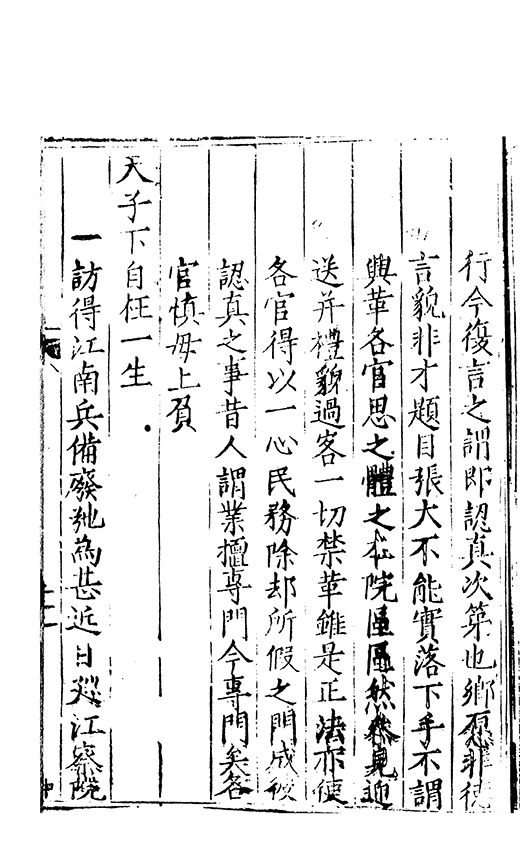 行今復言之謂即認真次第也鄉愿非德
言貌非才題目張大不能實落下手不謂
興革各官思之體之本院區區然參見迎
送并禮貌過客一切禁革雖是正法亦使
各官得以一心民務除却所假之門成彼
認真之事昔人謂業擅專門今專門矣各
官慎毋上負
天子下自枉一生
一訪得江南兵備廢弛為甚近日巡江察院